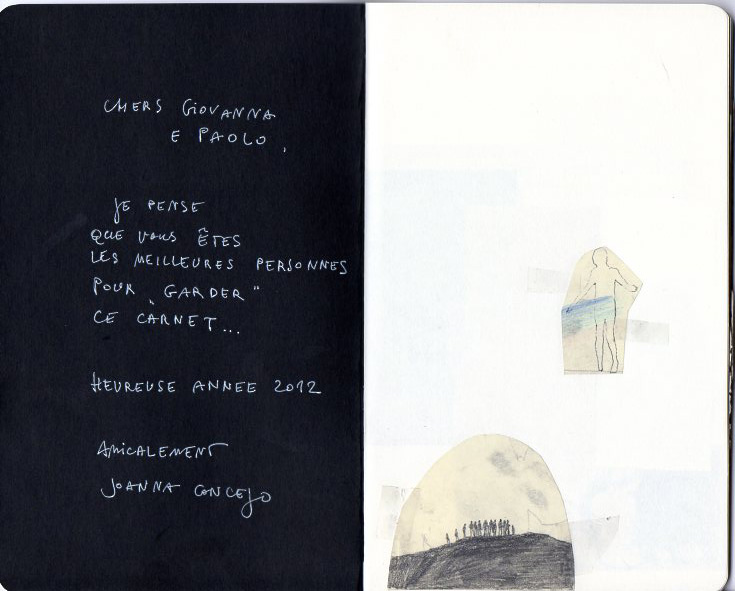 CHERS GIOVANNA
E PAOLO,
JE PENSE
QUE VOUS ÊTES
LES MEILLEURES PERSONNES
POUR „GARDER"
CE CARNET...
HEUREUSE ANNEE 2012
AMICALEMENT
JOANNA CONCEJO